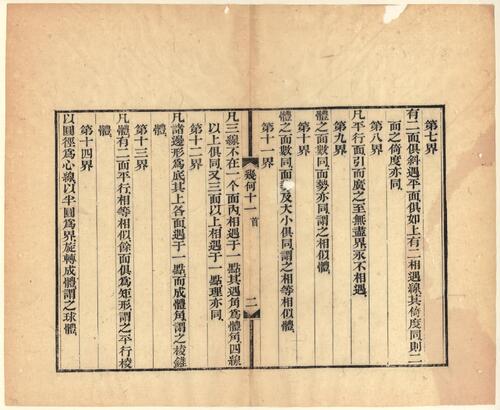 第七界
有二面俱斜遇平面俱如上有二相遇線其倚度同則二
面之倚度亦同
第八界
凡平行面引而廣之至無盡界永不相遇
第九界
體之面數同面勢亦同謂之相似體
第十界
體之面數同面 及大小俱同謂之相等相似體
第十一界
幾何十一 首 二
凡三線不在一个面內相遇于一點其遇角爲體角四線
以上俱同又三面以上相遇于一點理亦同
第十二界
凡諸邊形爲底其上各面遇于一點而成體角謂之棱錐
體
第十三界
凡體有二面平行相等相似餘面俱爲矩形謂之平行棱
體
第十四界
以圓徑爲心線以半圓爲界旋轉成體謂之球體